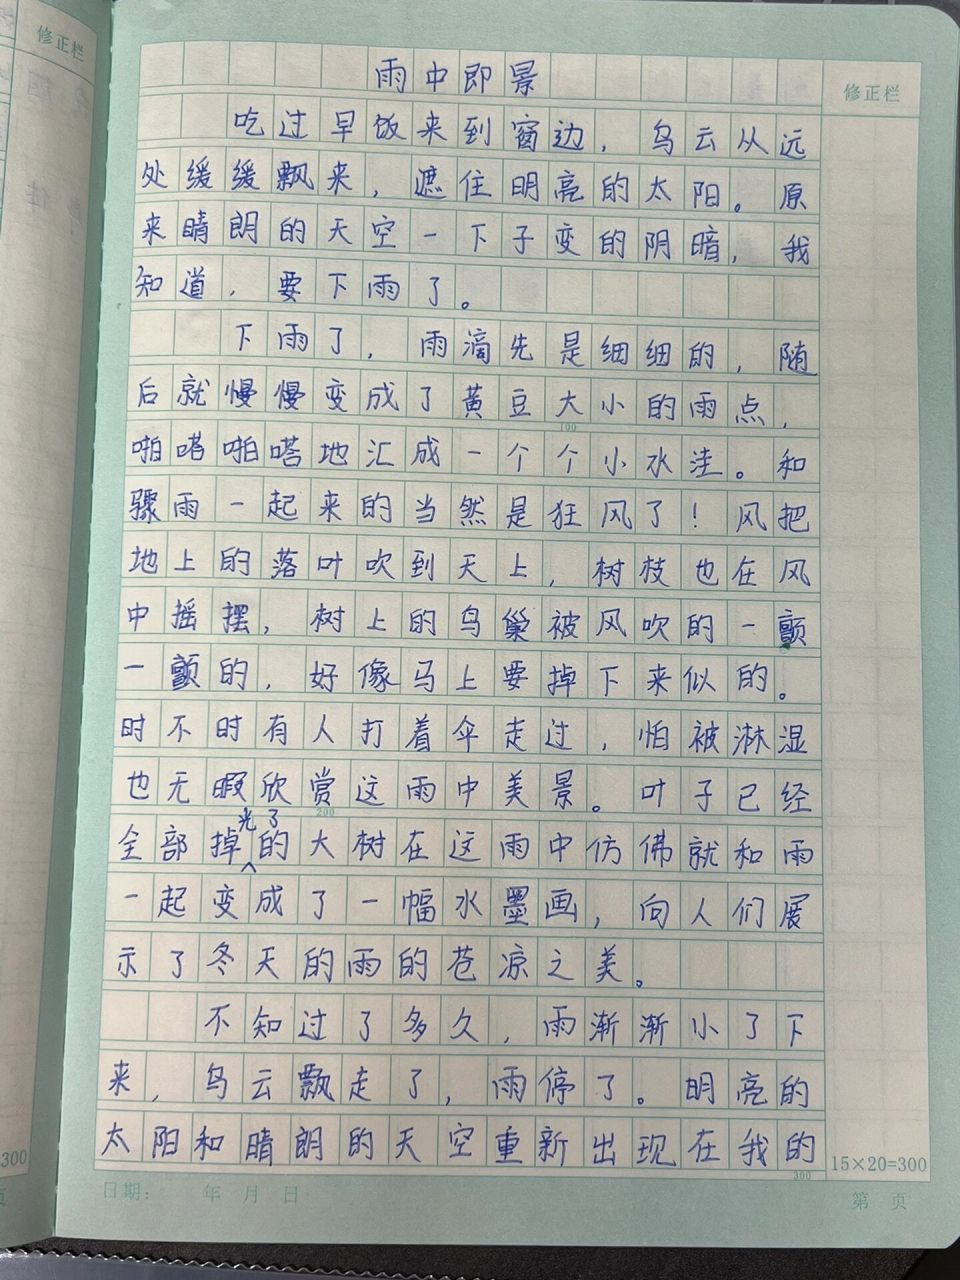 修正栏
修正栏
雨中即景
吃过早饭来到窗边，乌云从远
处缓缓飘来，遮住明亮的太阳。原
来晴朗的天空一下子变的阴暗，我
知道，要下雨了。
下雨了，雨滴先是细细的，随
后就慢慢变成了黄豆大小的雨点，
100
啪嗒啪嗒地汇成一个个小水洼。和
骤雨一起来的当然是狂风了！风把
地上的落叶吹到天上，树枝也在风
中摇摆，树上的鸟巢被风吹的一颤
一颤的，好像马上要掉下来似的。
时不时有人打着伞走过，怕被淋湿
也无暇欣赏这雨中美景。叶子已经
200
全部掉光了的大树在这雨中仿佛就和雨
一起变成了一幅水墨画，向人们展
示了冬天的雨的苍凉之美。
不知过了多久，雨渐渐小了下
来，乌云飘走了，雨停了。明亮的
太阳和晴朗的天空重新出现在我的
300
15×20=300
300
日期： 年 月 日
第 页
页